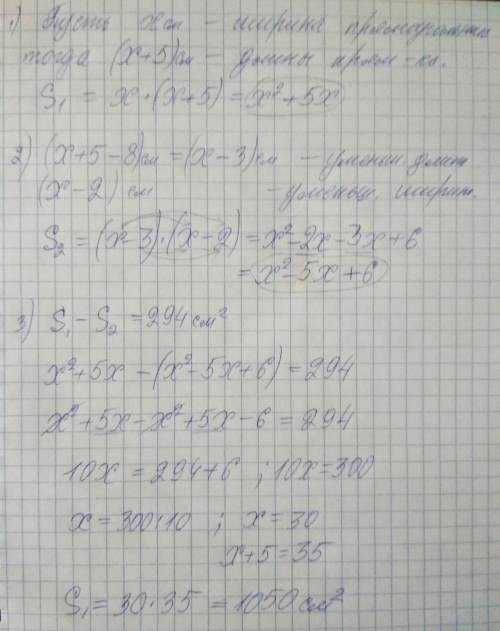 1) Пусть x см – ширина прямоугольника
тогда (x+5) см – длина прям-ка.
S₁ = x·(x+5) = x²+5x
2) (x+5-8) см = (x-3) см – уменьш. длин.
(x-2) см – уменьш. ширин.
S₂ = (x-3)·(x-2) = x²-2x-3x+6
= x²-5x+6
3) S₁-S₂ = 294 см²
x²+5x-(x²-5x+6) = 294
x²+5x-x²+5x-6 = 294
10x = 294+6 ; 10x=300
x = 300:10 ; x = 30
x+5 = 35
S₁ = 30·35 = 1050 см²